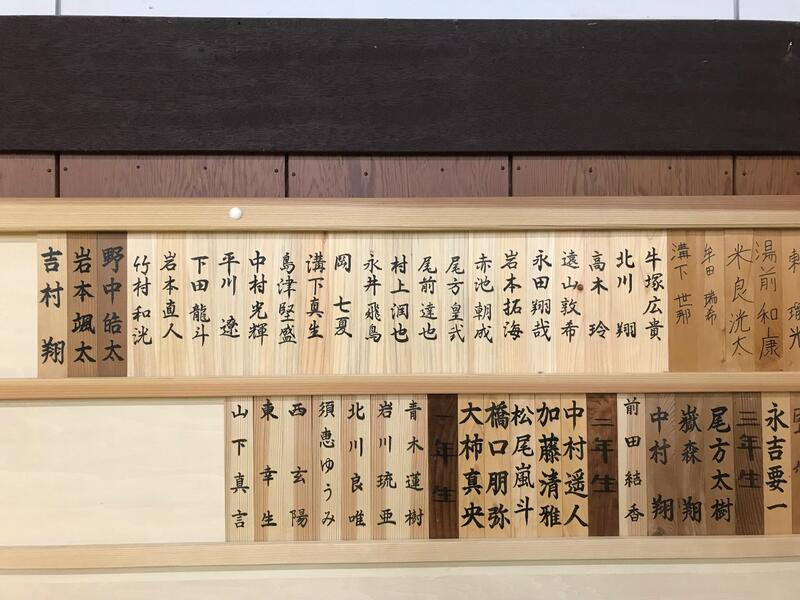 湯前和康
米良洸太
牟田瑞希
溝下世那
牛塚広貴
北川翔
高木玲
遠山敦希
永田翔哉
岩本拓海
赤池朝成
尾方皇弐
尾前達也
村上潤也
永井飛鳥
岡七夏
溝下真生
島津堅盛
中村光輝
平川遼
下田龍斗
岩本直人
竹村和洸
野中皓太
岩本颯太
吉村翔
永吉要一
三年生
尾方太樹
嶽森翔
中村翔
前田結香
二年生
中村遥人
加藤清雅
松尾嵐斗
橋口朋弥
大柿真央
一年生
青木蓮樹
岩川琉亜
北川良唯
須恵ゆうみ
西玄陽
東幸生
山下真言